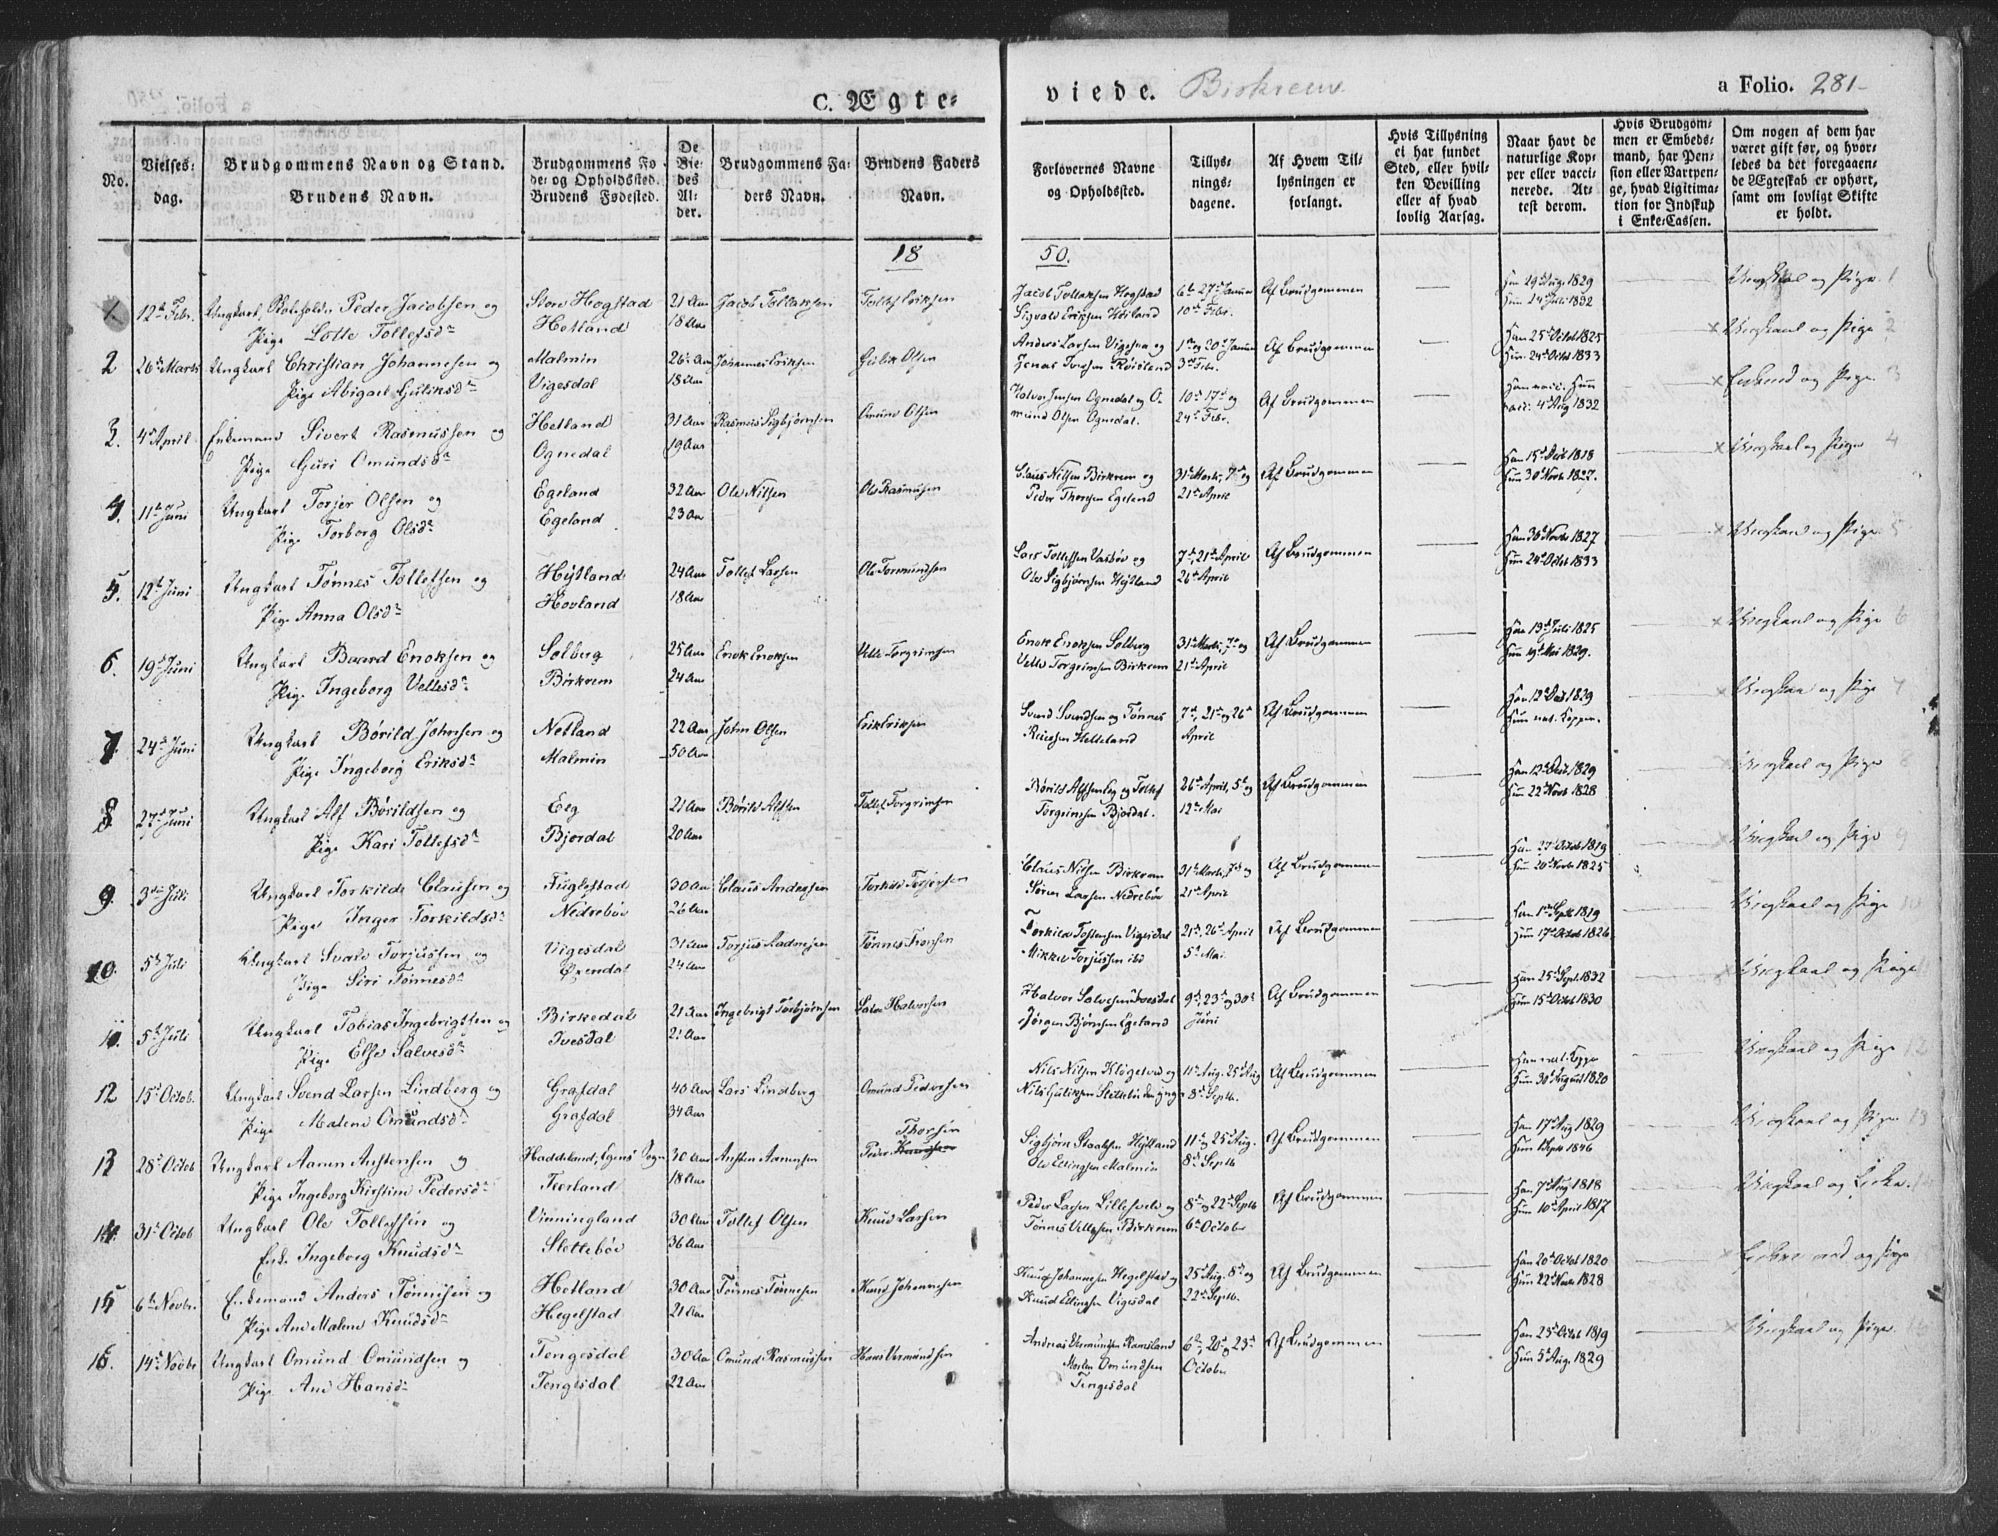 C. Ægte=
viede. Birkrem
a Folio. 281
No.
Vielses=
dag.
Brudgommens Navn og Stand.
Brudens Navn.
Brudgommens Fø
de= og Opholdssted.
Brudens Fødested.
De
Vie=
des
Al=
der.
Brudgommens Fa=
ders Navn.
Brudens Faders
Navn.
Forlovernes Navne
og Opholdssted.
Tillys=
nings=
dagene.
Af Hvem Til=
lysningen er
forlangt.
Hvis Tillysning
ei har fundet
Sted, eller hvil=
ken Bevilling
eller af hvad
lovlig Aarsag.
Naar havt de
naturlige Kop=
per eller vacci=
nerede. At=
test derom.
Hvis Brudgom=
men er Embeds=
mand, har Pen=
sion eller Vartpen=
ge, hvad Legitima=
tion for Indskud
i Enke=Cassen.
Om nogen af dem har
været gift før, og hvor=
ledes da det foregaaen=
de Ægteskab er ophørt,
samt om lovligt Skifte
er holdt.
18 50.
1. 12te Febr. Ungkarl, Peder Jacobsen og Store Hegstad 21 Aar Jacob Tollaksen Tollef Eriksen Jacob Tollaksen Hegstad 6te 27de Januar Af Brudgommen Han 29de Aug. 1829 Ungkarl og Pige 1
Pige Lotte Tollefsdr Hetland 18 Aar Sigvald Eriksen Høiland 10de Febr. Hun 14de Juli 1832
2 26de Marts Ungkarl Christian Johannesen og Malmin 26 Aar Johannes Eriksen Gulik Olsen Anders Larsen Vigesaa og 1te og 20de Januar Af Brudgommen Han 25de Octob 1825 Ungkarl og Pige 2
Pige Abigael Guliksdr Vigesdal 18 Aar Jonas Kvisland 3de Febr. Hun 24de Octob 1833
3. 4de April Enkemand Sivert Rasmussen og Hetland 31 Aar Rasmus Sigbjørnsen Omund Olsen Halvor Jensen Ognedal og O= 10de 17de og Af Brudgommen Han vacc. Hun Enkemd og Pige 3
Pige Guri Omundsdr Ognedal 19 Aar mund Olsen Ognedal. 24de Febr. vacc. 4de Aug 1832
4. 11te Juni Ungkarl Torjer Olsen og Egeland 32 Aar Ole Nilsen Ole Rasmusen Claus Nilsen Birkrem og 31te Marts, 7de og Af Brudgommen Han 15de 1818 Ungkarl og Pige 4
Pige Torborg Olsdr Egeland 23 Aar Peder Thorsen Egeland 21de April Hun 30de Novb 1827.
5. 12te Juni Ungkarl Tønnes Tollefsen og Høytland 24 Aar Tollef Larsen Ole Tormundsen Lars Tollefsen Vasbøe og 7de, 21de April Af Brudgommen Han 30de Novb 1827 Ungkarl og Pige 5
Pige Anna Olsdr Hovland 18 Aar Ole Sigbjørnsen Høytland 26de April Hun 24de Octob 1833
6. 19de Juni Ungkarl Baard Enoksen og Solberg 25 Aar Enok Enoksen Velle Torgrimsen Enok Enoksen Solberg 31te Marts, 7de og Af Brudgommen Han 13de Juli 1825 Ungkarl og Pige 6
Pige Ingeborg Vellesdr Birkrem 24 Aar Velle Torgrimsen Birkrem 21de April Hun 19de Mai 1829.
7. 24de Juni Ungkarl Børild Johnsen og Netland 22 Aar John Olsen Erik Eriksen Svend Svendsen og Tønnes 7de, 21de og 26de Af Brudgommen Han 12te 1829 Ungkarl og Pige 7
Pige Ingeborg Eriksdr Malmin 50 Aar Helleland April Hun nat. Kopper.
8. 27de Juni Ungkarl Alf Børildsen og Eeg 21 Aar Børild Alfsen Tollef Torgrimsen Børild Alfsen Eeg og Tollef 26de April, 5te og Af Brudgommen Han 12te 1829 Ungkarl og Pige 8
Pige Kari Tollefsdr Bjordal 20 Aar Torgrimsen Bjordal. 12te Mai Hun 22de Novb 1828
9. 3die Juli Ungkarl Torkild Clausen og Fuglestad 30 Aar Claus Andersen Torkild Torjersen Claus Nilsen Birkrem 31te Marts, 7de og Af Brudgommen Han 27de Octob 1819 Ungkarl og Pige 9
Pige Inger Torkildsdr Nedrebøe 26 Aar Søren Larsen Nedrebøe 21de April Hun 20de Novb 1825
10. 5te Juli Ungkarl Torjussen og Vigesdal 31 Aar Torjus Aadnesen Tønnes Torkild Vigesdal 21de, 26de April Af Brudgommen Han 1te Septb 1819 Ungkarl og Pige 10
Pige Siri Tønnesdr Ørendal 24 Aar Mikkel Torjussen ibd 5te Mai Hun 17de Octob 1826
11. 5te Juli Ungkarl Tobias Ingebrigtsen og Birkedal 21 Aar Ingebrigt Torbjørnsen Salve Halvorsen Halvor Salvesen Ivesdal 9de, 23de og 30te Af Brudgommen Han 25de Sept. 1832 Ungkarl og Pige
Pige Else Salvesdr Ivesdal 21 Aar Jørgen Bjørnsen Egeland Juni Hun 15de Octob 1830
12 15de Octob. Ungkarl Svend Larsen Lindberg og Grafdal 40 Aar Lars Lindberg Omund Pedersen Nils Nilsen Kløgetvedt og 11te Aug. 25de Aug Af Brudgommen Han nat. Kopper Ungkarl og Pige 12
Pige Malene Omundsdr Grafdal 34 Aar Nils Guliksen Slettebøe 8de Septb. Hun 30te August 1820
13 28de Octob Ungkarl Aanen Anstensen og Haddeland, Egens Sogn 30 Aar Ansten Aanensen Peder Thorsen Sigbjørn Staalesen Høytland 11te og 25de Aug. Af Brudgommen Han 17de Aug 1829 Ungkarl og Pige 13
Pige Ingeborg Kirstine Pedersdr Teerland 18 Aar Ole Ellingsen Malmin 8de Septb Hun 1ste Sept 1846
14. 31te Octob Ungkarl Ole Tollefsen og Vinningland 30 Aar Tollef Olsen Knud Larsen Peder Larsen Lillesvele og 8de og 22de Septb Af Brudgommen Han 7de Aug 1818 Ungkarl og Enke. 14
Enke Ingeborg Knudsdr Slettebøe 36 Aar Tønnes Vellesen Birkrem 6te October Hun 10de April 1817
15 6te Novbr. Enkemand Anders Tønnesen og Hetland 30 Aar Tønnes Tønnesen Knud Johannesen Knud Johannesen Hegelstad og 25de Aug. 8de og Af Brudgommen Han 20de Octob 1820 Enkemand og Pige
Pige Ane Malene Knudsdr Hegelstad 21 Aar Knud Ellingsen Vigesdal 22de Septb. Hun 22de Novb 1828
16. 14de Novbr Ungkarl Omund Omundsen og Tengesdal 30 Aar Omund Rasmussen Hans Vermundsen Andreas Vermundsen Ramsland 6te, 20de og 25de Af Brudgommen Han 25de Octob 1819 Ungkarl og Pige 16
Pige Ane Hansdr Tengesdal 22 Aar Morten Omundsen October Hun 5te Aug. 1829
Tengesdal